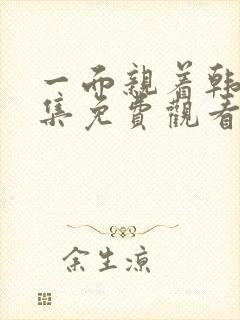 一而親着韩
集免費觀看
余生凉